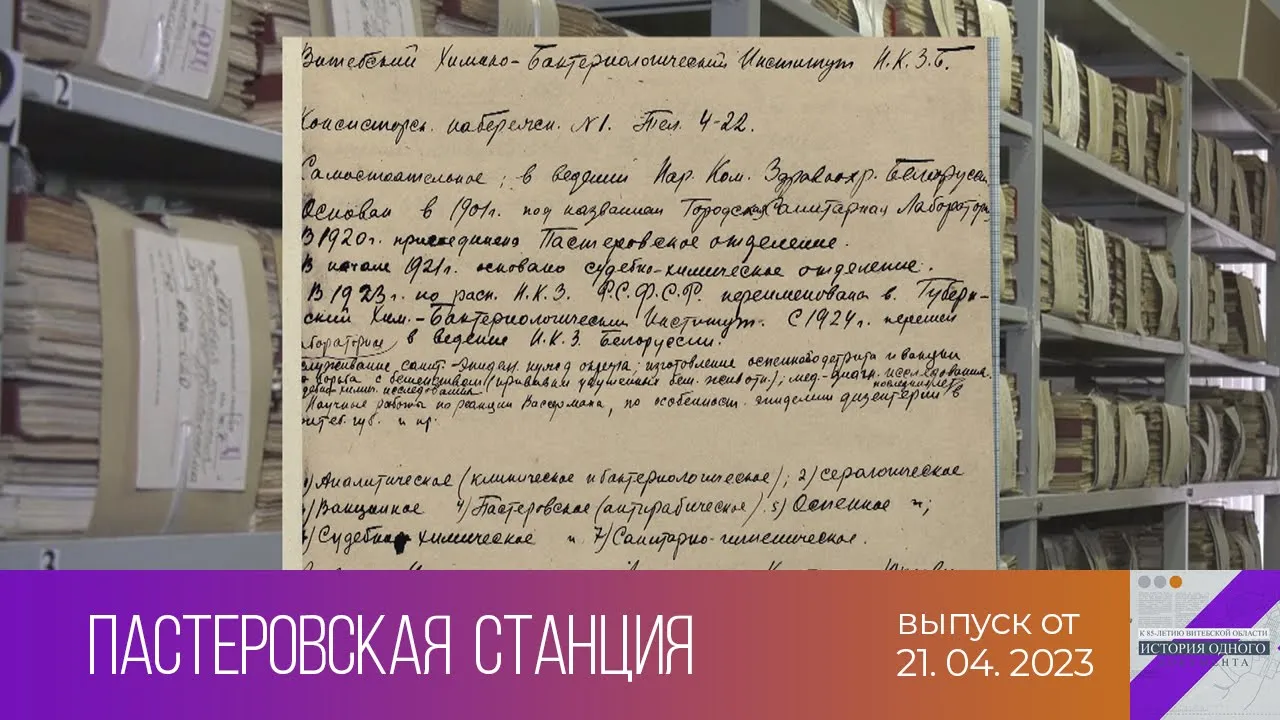 Витебский Химико-Бактериологический Институт Н.К.З.Б.
Консисторск. набережн. №1. Тел. 4-22.
Самостоятельное; в ведении Нар. Ком. Здравоохр. Белорусси
Основан в 1901г. под названием Городская Санитарная Лаборатор
В 1920г. присоединено Пастеровское отделение.
В начале 1921г. основано судебно-химическое отделение.
В 1923г. по расп. Н.К.З. Р.С.Ф.С.Р. переименована в Губерн-
ский Хим.-Бактериологический Институт. С 1924г. перешел
в ведение Н.К.З. Белоруссии.
служивание санит.-эпидем. нужд округа; изготовление оспенного детрита и вакцин
борьба с бешенством (прививки укушенным беш. животн.); мед.-диагн. исследования.
хим. исследования
Научные работы по реакции Вассермана, по особенност. эпидемии дизентерии в последние лет
итеб. губ. и пр.
1) Аналитическое (клиническое и бактериологическое); 2) серологическое
3) Вакцинное 4) Пастеровское (антирабическое) 5) Оспенное
6) Судебно химическое и 7) Санитарно-гигиеническое.
2
3
ПАСТЕРОВСКАЯ СТАНЦИЯ
выпуск от
21. 04. 2023
К 85-ЛЕТИЮ ВИТЕБСКОЙ ОБЛАСТИ
ИСТОРИЯ ОДНОГО
ДОКУМЕНТА